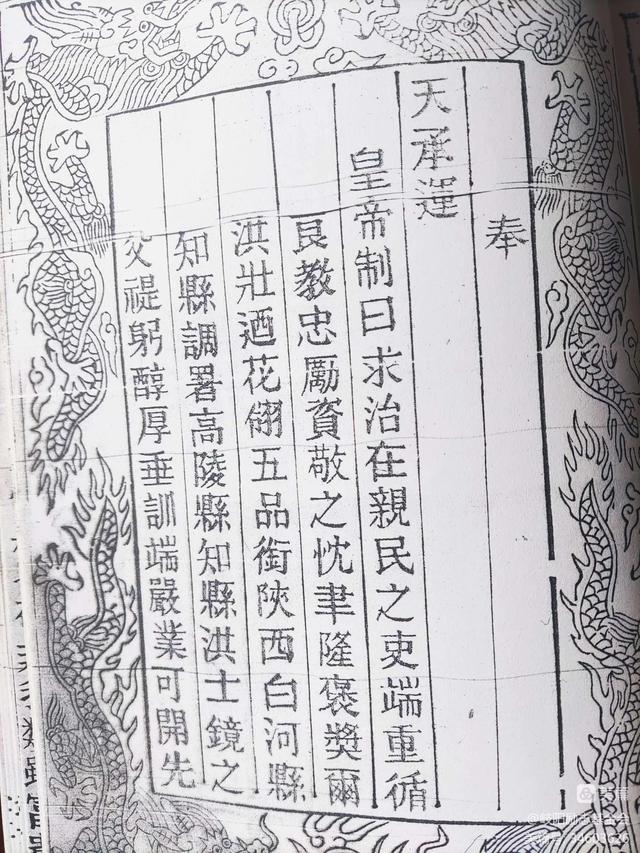 奉
天承運
皇帝制曰求治在親民之吏端重循
良教忠勵資敬之忱聿隆褒獎爾
洪壯迺花翎五品銜陝西白河縣
知縣調署高陵縣知縣洪士鏡之
父禔躬醇厚垂訓端嚴業可開先